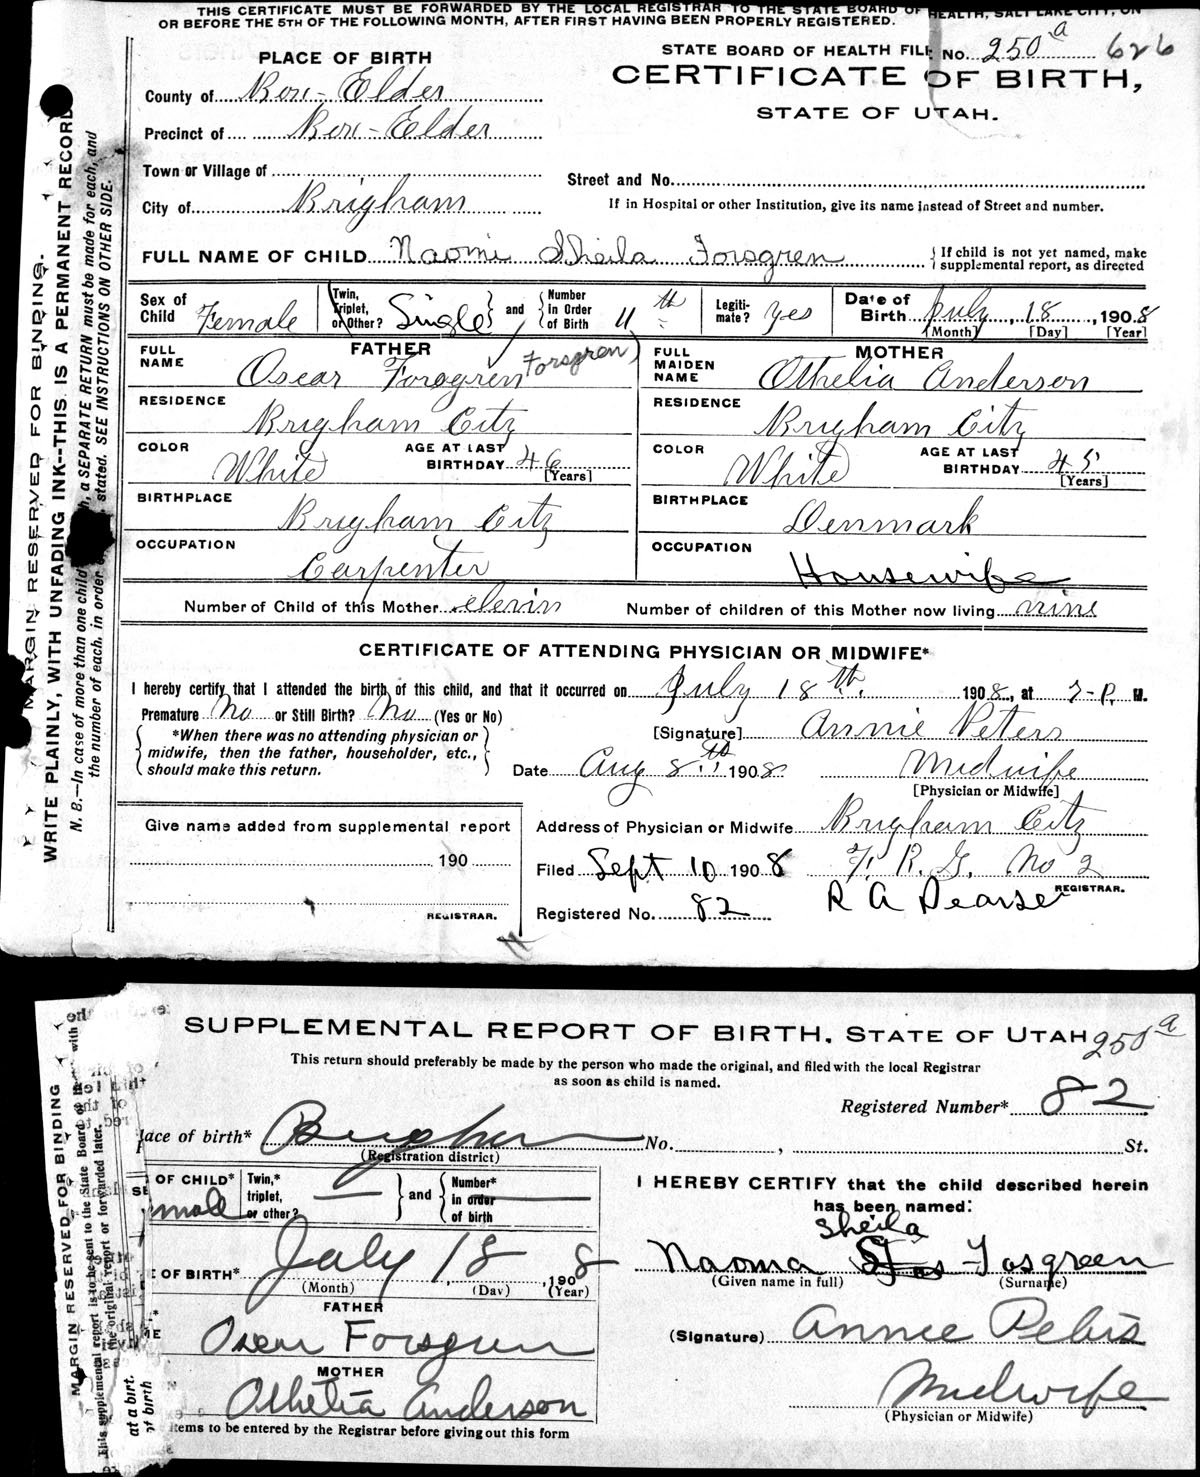 THIS CERTIFICATE MUST BE FORWARDED BY THE LOCAL REGISTRAR TO THE STATE BOARD OF HEALTH, SALT LAKE CITY, ON
OR BEFORE THE 5TH OF THE FOLLOWING MONTH, AFTER FIRST HAVING BEEN PROPERLY REGISTERED.
PLACE OF BIRTH
STATE BOARD OF HEALTH FILE No. 250 a 626
CERTIFICATE OF BIRTH,
STATE OF UTAH.
County of Box-Elder
Precinct of Box-Elder
Town or Village of
Street and No.
City of Brigham
If in Hospital or other Institution, give its name instead of Street and number.
FULL NAME OF CHILD Naomi Sheila Forsgren
{ If child is not yet named, make
supplemental report, as directed
Sex of Child Female
Twin, Triplet, or Other? Single } and { Number In Order of Birth 11th
Legiti-mate? yes
Date of Birth July 18, 1908
[Month] [Day] [Year]
FATHER
FULL NAME Oscar Forsgren Forsgren
RESIDENCE Brigham City
COLOR White AGE AT LAST BIRTHDAY 46 [Years]
BIRTHPLACE Brigham City
OCCUPATION Carpenter
MOTHER
FULL MAIDEN NAME Othelia Anderson
RESIDENCE Brigham City
COLOR White AGE AT LAST BIRTHDAY 45 [Years]
BIRTHPLACE Denmark
OCCUPATION Housewife
Number of Child of this Mother elevin Number of children of this Mother now living nine
CERTIFICATE OF ATTENDING PHYSICIAN OR MIDWIFE*
I hereby certify that I attended the birth of this child, and that it occurred on July 18th. 1908, at P. M.
Premature No or Still Birth? No (Yes or No)
[Signature] Annie Peters
{ *When there was no attending physician or
midwife, then the father, householder, etc.,
should make this return. }
Date Aug 8th 1908
Midwife
[Physician or Midwife]
Give name added from supplemental report
190
REGISTRAR.
Address of Physician or Midwife Brigham City
Filed Sept 10 1908 No 2
REGISTRAR.
R A Pearse
Registered No. 82
MARGIN RESERVED FOR BINDING.
WRITE PLAINLY, WITH UNFADING INK--THIS IS A PERMANENT RECORD
N. B.—In case of more than one child a SEPARATE RETURN must be made for each, and
the number of each, in order stated. SEE INSTRUCTIONS ON OTHER SIDE.
SUPPLEMENTAL REPORT OF BIRTH, STATE OF UTAH 250 a
This return should preferably be made by the person who made the original, and filed with the local Registrar
as soon as child is named.
Registered Number* 82
lace of birth* Brigham No. , St.
(Registration district)
OF CHILD* male
Twin,* triplet, or other? } and { Number* in order of birth
I HEREBY CERTIFY that the child described herein
has been named:
Sheila
Naoma Fosgreen
(Given name in full) (Surname)
E OF BIRTH* July 18, 1908
(Month) (Day) (Year)
FATHER
Oscar Forsgren
(Signature) Annie Peters
MOTHER
Othelia Anderson
Midwife
(Physician or Midwife)
items to be entered by the Registrar before giving out this form
MARGIN RESERVED FOR BINDING
This supplemental report is to be sent to the State Board of with
the original report or forwarded later.
at a birt.
of birth